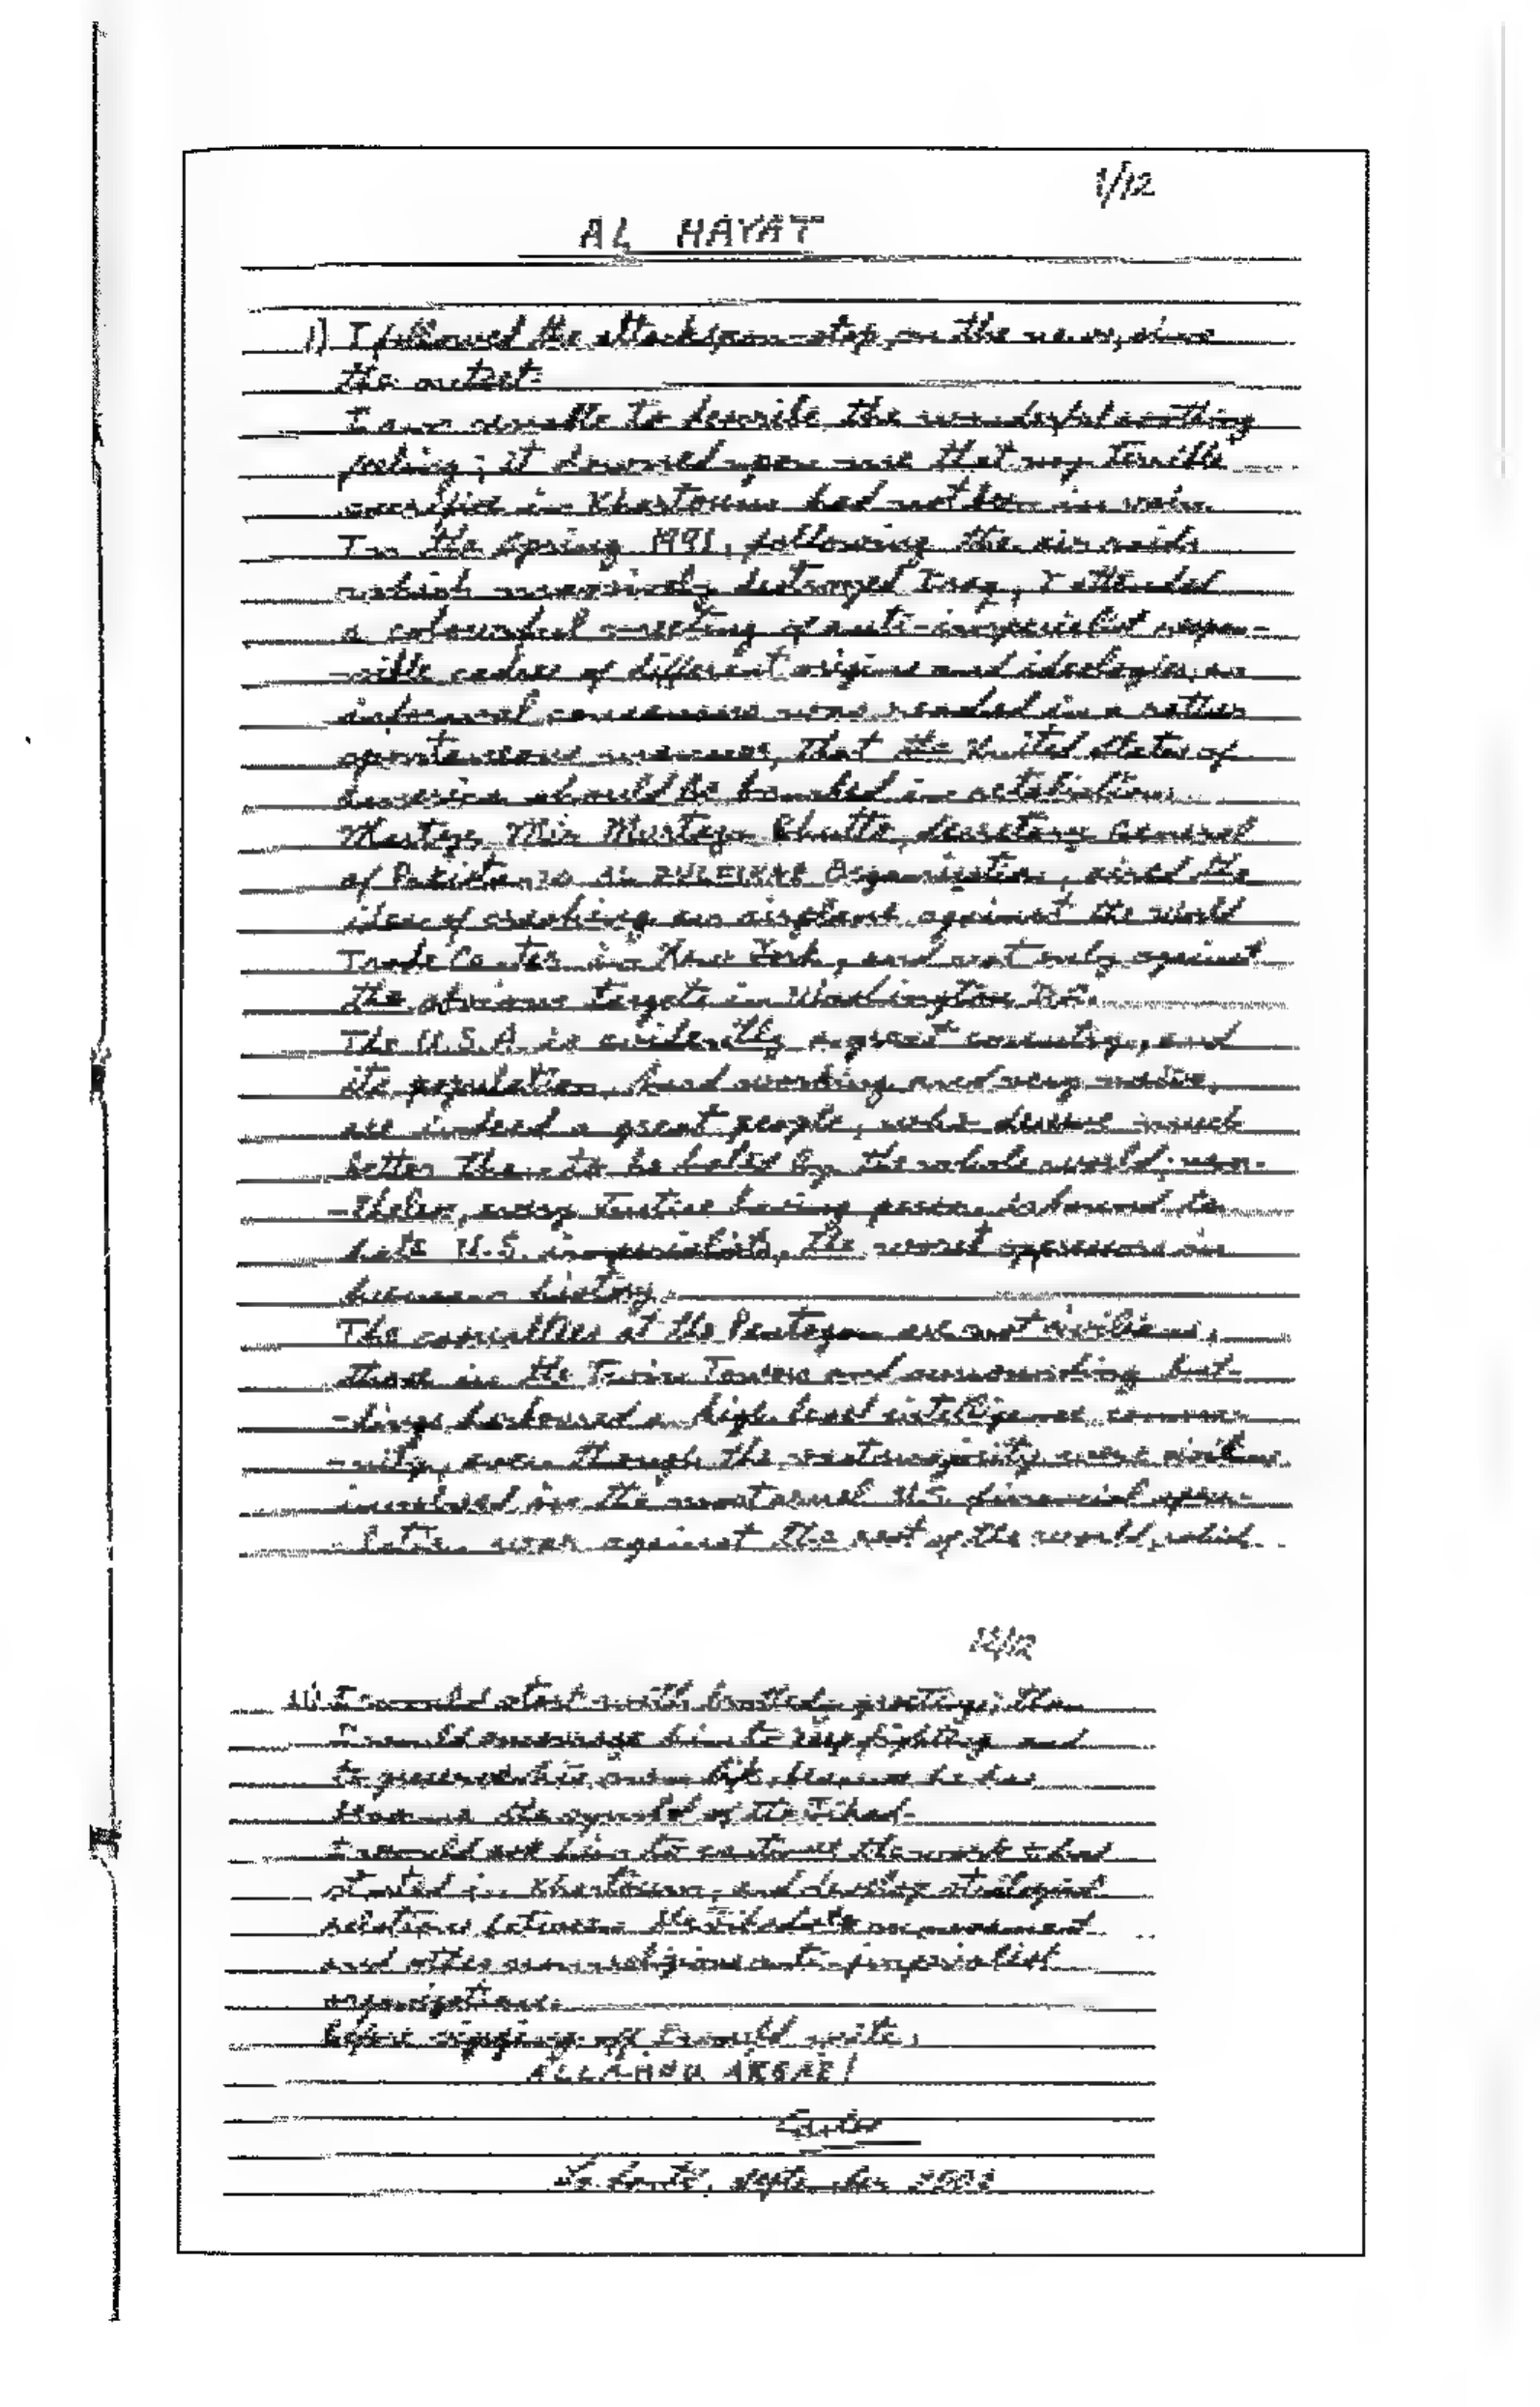 1/12
AL HAYAT
1) I followed the attacks, non-stop, on the news, since
the outset.
I am unable to describe the wonderful soothing
feeling; it downed upon me that my terrible
sacrifice in Khartoum had not been in vain.
In the Spring 1991, following the air raids
which massively destroyed Iraq, I attended
a colourful meeting of anti-imperialist respon-
-sible cadres of different origins and ideologies; an
informal consensus was reached in a rather
spontaneous manner, that the United States of
America should be bombed in retaliation.
Martyr Mir Murtaza Bhutto, Secretary General
of Pakistan's AL ZULFIKAR Organisation, aired the
idea of crashing an airplane against the World
Trade Center in New York, and not only against
the obvious targets in Washington D.C.
The U.S.A. is evidently a great country, and
its population, hard working and very naive,
are indeed a great people, who deserve much
better than to be hated by the whole world; non-
-theless, every Justice loving person is bound to
hate U.S. imperialists, the worst oppressors in
human history.
The casualties at the Pentagon are not civilians;
those in the Twin Towers and surrounding buil-
-dings harboured a high level intelligence commu-
-nity, even though the vast majority were civilians
involved in the most cruel U.S. financial specu-
-lation war against the rest of the world, which
12/12
11) I would start with brotherly greetings; then
I would encourage him to keep fighting and
to preserve his own life, because he has
become the symbol of the Jihad.
I would ask him to continue the work I had
started in Khartoum, and develop strategical
relations between the Jihadist movement
and other non-religious anti-imperialist
organizations.
Before signing off I would write:
ALLAHOU AKBAR!
Carlos
La Santé, September 2001